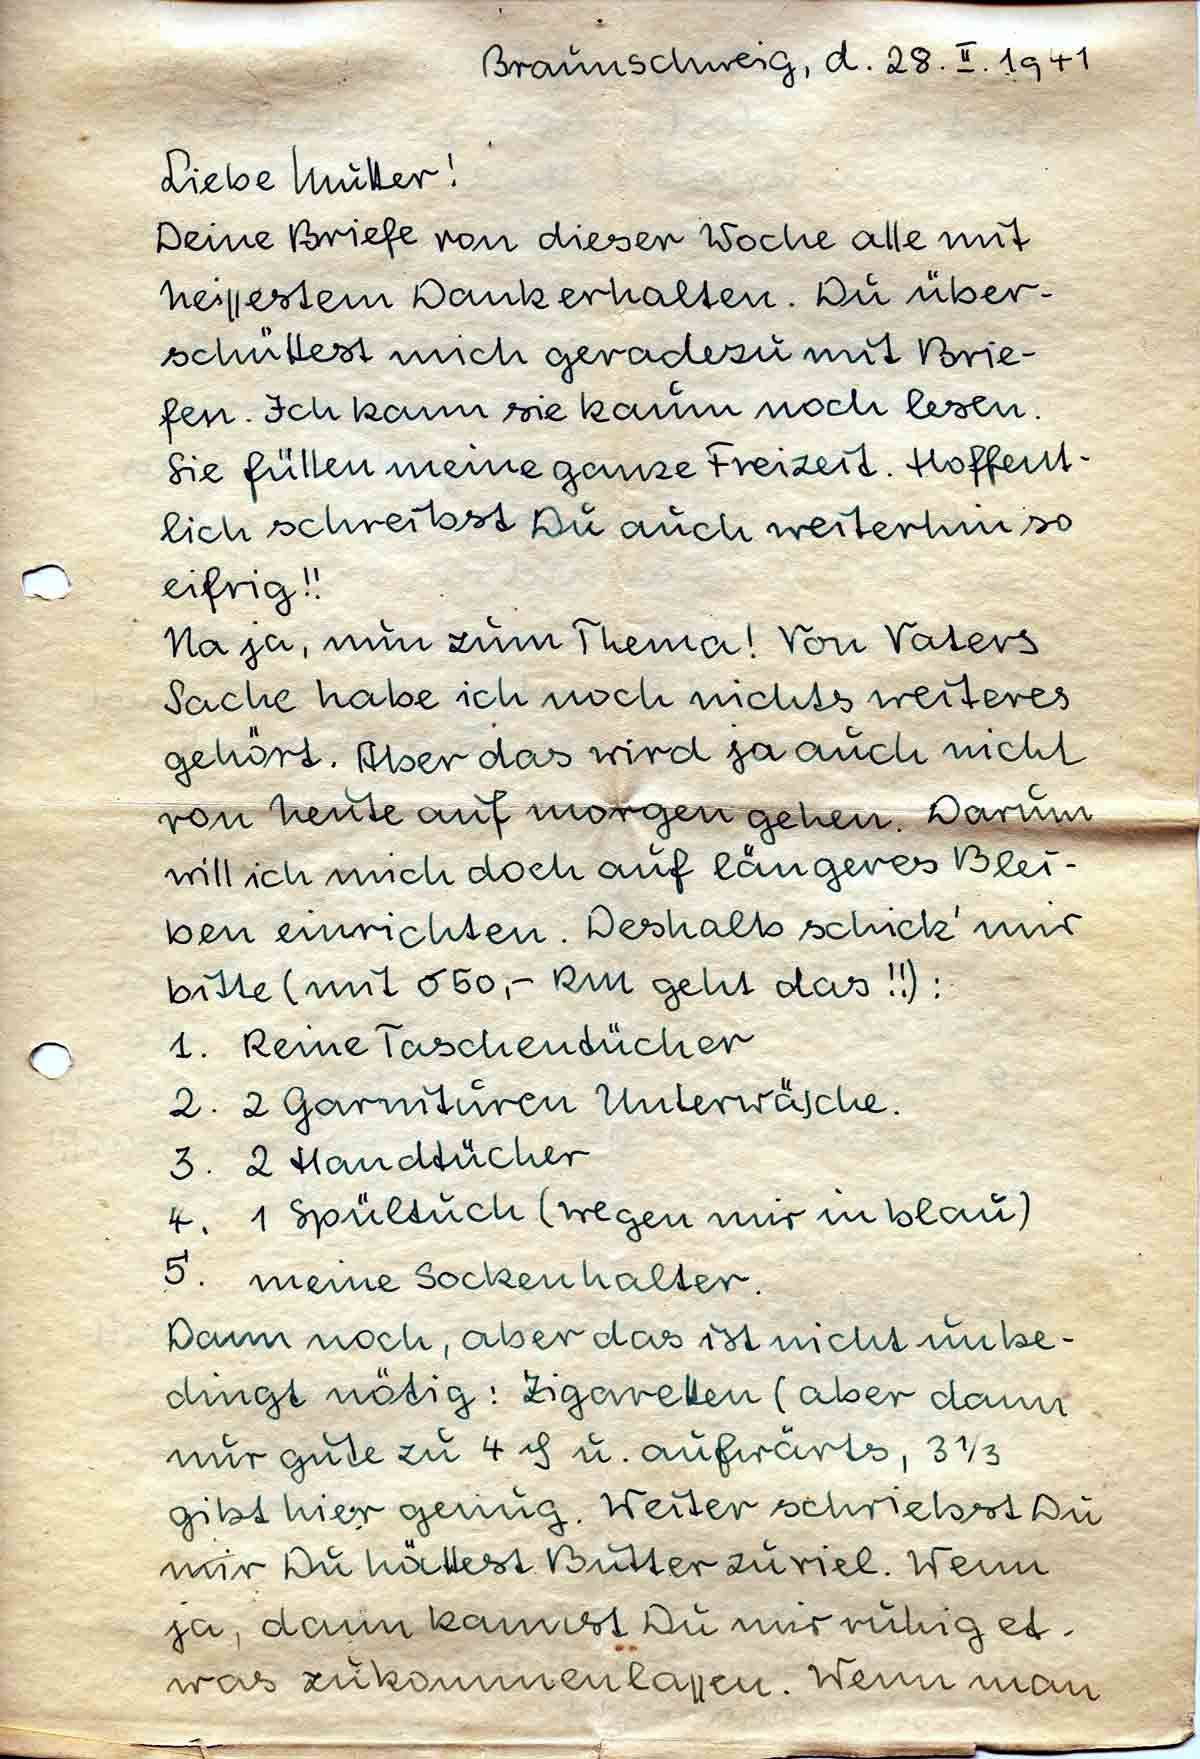 Braunschweig, d. 28. II. 1941
Liebe Mutter!
Deine Briefe von dieser Woche alle mit
heissestem Dank erhalten. Du über-
schüttest mich geradezu mit Brie-
fen. Ich kann sie kaum noch lesen.
Sie füllen meine ganze Freizeit. Hoffent-
lich schreibst Du auch weiterhin so
eifrig!!
Na ja, nun zum Thema! Von Vaters
Sache habe ich noch nichts weiteres
gehört. Aber das wird ja auch nicht
von heute auf morgen gehen. Darum
will ich mich doch auf längeres Blei-
ben einrichten. Deshalb schick' mir
bitte (mit 50,- RM geht das!!):
1. Reine Taschentücher
2. 2 Garnituren Unterwäsche.
3. 2 Handtücher
4. 1 Spültuch (wegen mir in blau)
5. meine Sockenhalter.
Dann noch, aber das ist nicht unbe-
dingt nötig: Zigaretten (aber dann
nur gute zu 4 ₰ u. aufwärts, 3 1/3
gibt hier genug. Weiter schriebst Du
mir Du hättest Butter zuviel. Wenn
ja, dann kannst Du mir ruhig et-
was zukommenlassen. Wenn man